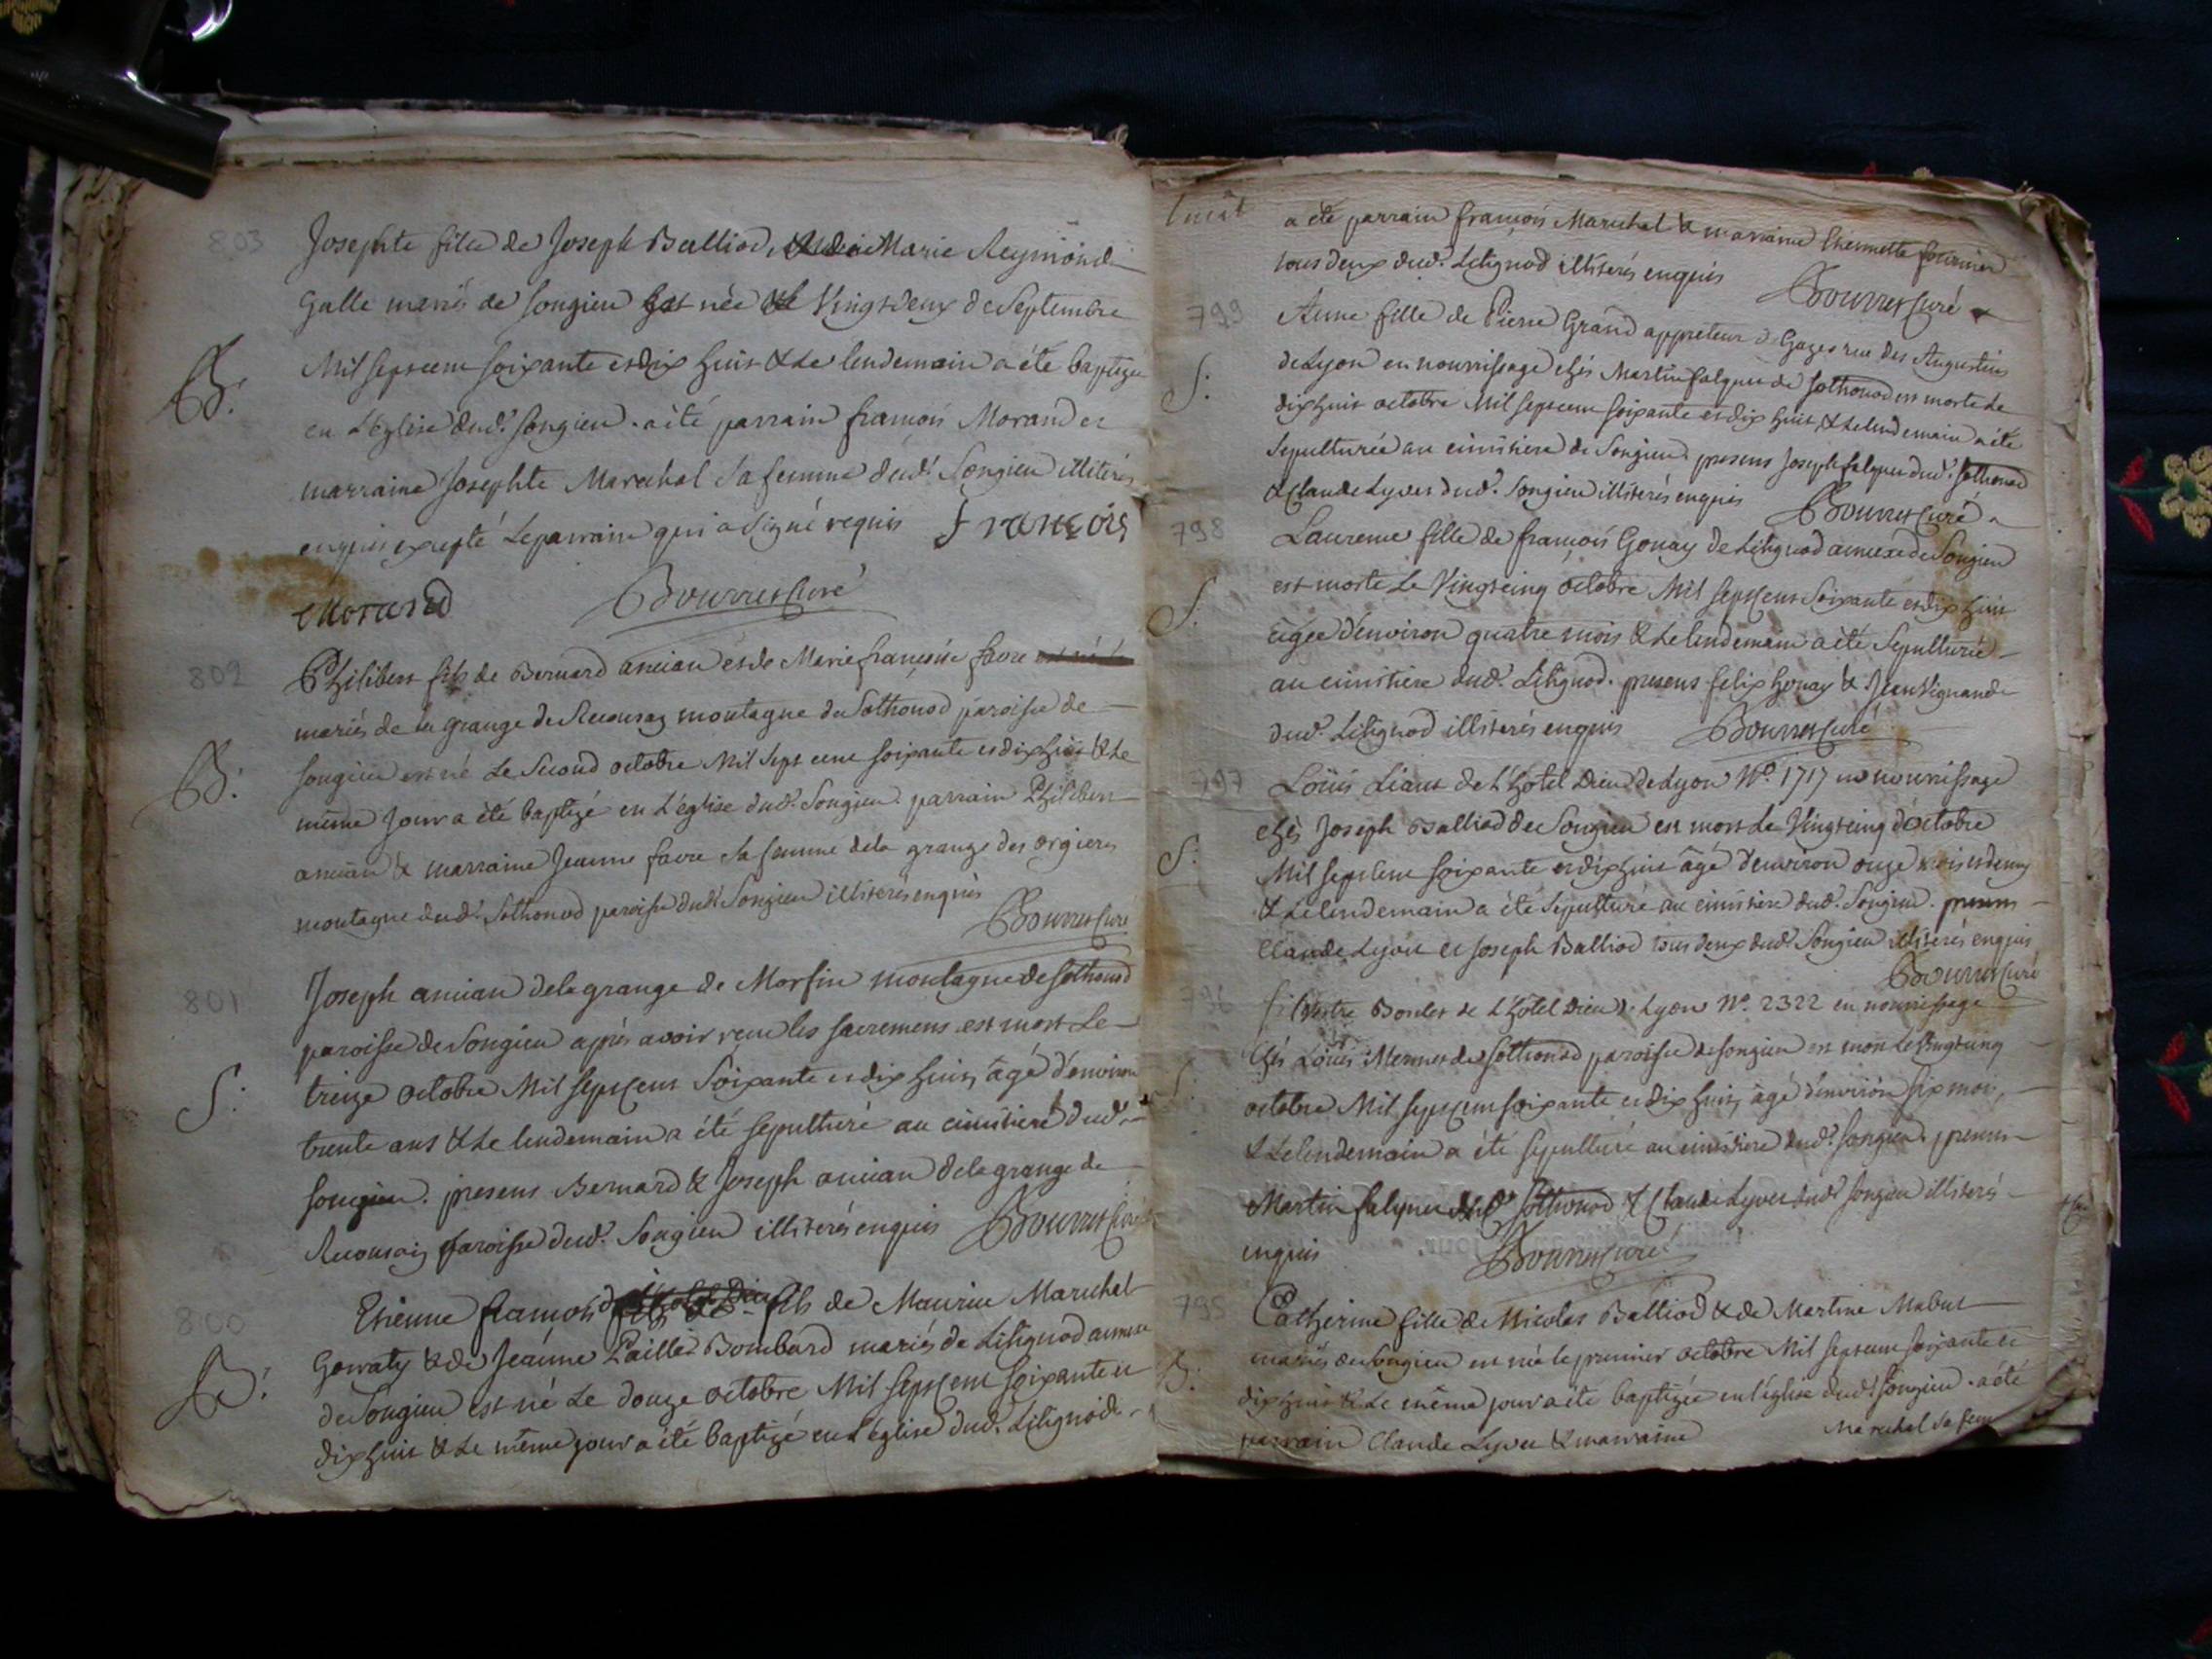 803
Josephte fille de Joseph Balliod, & de Marie Reymond
Galle mariés de Songieu est née le vingtdeux de Septembre
Mil sept cent soixante et dix huit & le lendemain a été baptizée
B:
en L'Eglise dud.t Songieu. a été parrain françois Morand et
marraine Josephte Marechal sa femme dud.t Songieu illiterés
enquis excepté Le parrain qui a signé requis françois
Morand Bourret Curé
802
Philibert fils de Bernard ancian et de Marie françoise favre
mariés de la grange de Recousaz montagne de Sothonod paroisse de
B:
Songieu est né Le Second octobre Mil Sept cent soixante et dix huit & Le
même Jour a été baptizé en L'église dud.t Songieu. parrain Philibert
ancian & marraine Jeanne favre sa femme de la grange des orgieres
montagne dud.t Sothonod paroisse dud.t Songieu illiterés enquis
Bourret Curé
801
Joseph ancian de la grange de Morfin montagne de Sothonod
paroisse de Songieu après avoir reçu les sacremens est mort Le
S:
treize octobre Mil Sept Cent Soixante et dix huit, âgé d'environ
trente ans & Le lendemain a été sepulturé au cimitiere dud.t
Songieu. presens Bernard & Joseph ancian de la grange de
paroisse dud.t Songieu illiterés enquis Bourret Curé
800
Etienne françois fils de Maurice Marechal
B:
& de Jeanne Paillet Bombard mariés de Litignod annexe
de Songieu est né Le douze octobre Mil Sept Cent Soixante et
dix huit & Le même jour a été baptizé en L'église dud.t Litignod
a été parrain françois Marechal & marraine Thiennette fournier
tous deux dud.t Litignod illiterés enquis Bourret Curé
799
Anne fille de Pierre Grand appreteur de Gazes rue des Augustins
S:
de Lyon en nourrissage chés Martin falquet de Sothonod est morte Le
dix huit octobre Mil sept cent soixante et dix huit, & Le lendemain a été
sepulturée au cimitiere de Songieu. presens Joseph falquet dud.t Sothonod
& Claude Lyvet dud.t Songieu illiterés enquis Bourret Curé
798
Laurence fille de françois Gonay de Litignod annexe de Songieu
est morte Le Vingt cinq octobre Mil Sept Cent Soixante et dix huit
S:
âgée d'environ quatre mois & Le lendemain a été Sepulturée
au cimitiere dud.t Litignod. presens felix Gonay & Jean Vignand
dud.t Litignod illiterés enquis Bourret Curé
797
Loüis Liant de L'Hotel Dieu de Lyon N.o 1717 en nourrissage
chés Joseph Balliod de Songieu est mort Le Vingt cinq d'octobre
S:
Mil sept Cent soixante et dix huit âgé d'environ onze mois et demy
& Le lendemain a été sepulturé au cimitiere dud.t Songieu. presens
Claude Lyvet et Joseph Balliod tous deux dud.t Songieu illiterés enquis
Bourret Curé
796
Silvestre Boulet de L'Hotel Dieu de Lyon N.o 2322 en nourrissage
chés Loüis Mermet de Sothonod paroisse de Songieu est mort Le Vingt cinq
S:
octobre Mil sept cent soixante et dix huit, âgé d'environ six mois,
& Le lendemain a été sepulturé au cimitiere dud.t Songieu. presens
Martin falquet dud.t Sothonod & Claude Lyvet dud.t Songieu illiterés
enquis Bourret Curé
795
Catherine fille de Nicolas Balliod & de Martine Mabut
mariés de Songieu est née le premier octobre Mil sept cent soixante et
B:
dix huit & Le même jour a été baptizée en L'église dud.t Songieu. a été
parrain Claude Lyvet & marraine Marechal sa fem